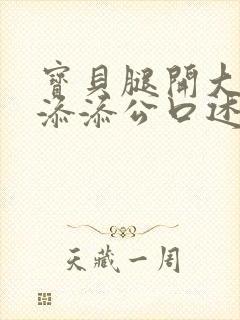 寶貝腿開大
添添公口述
天藏一周